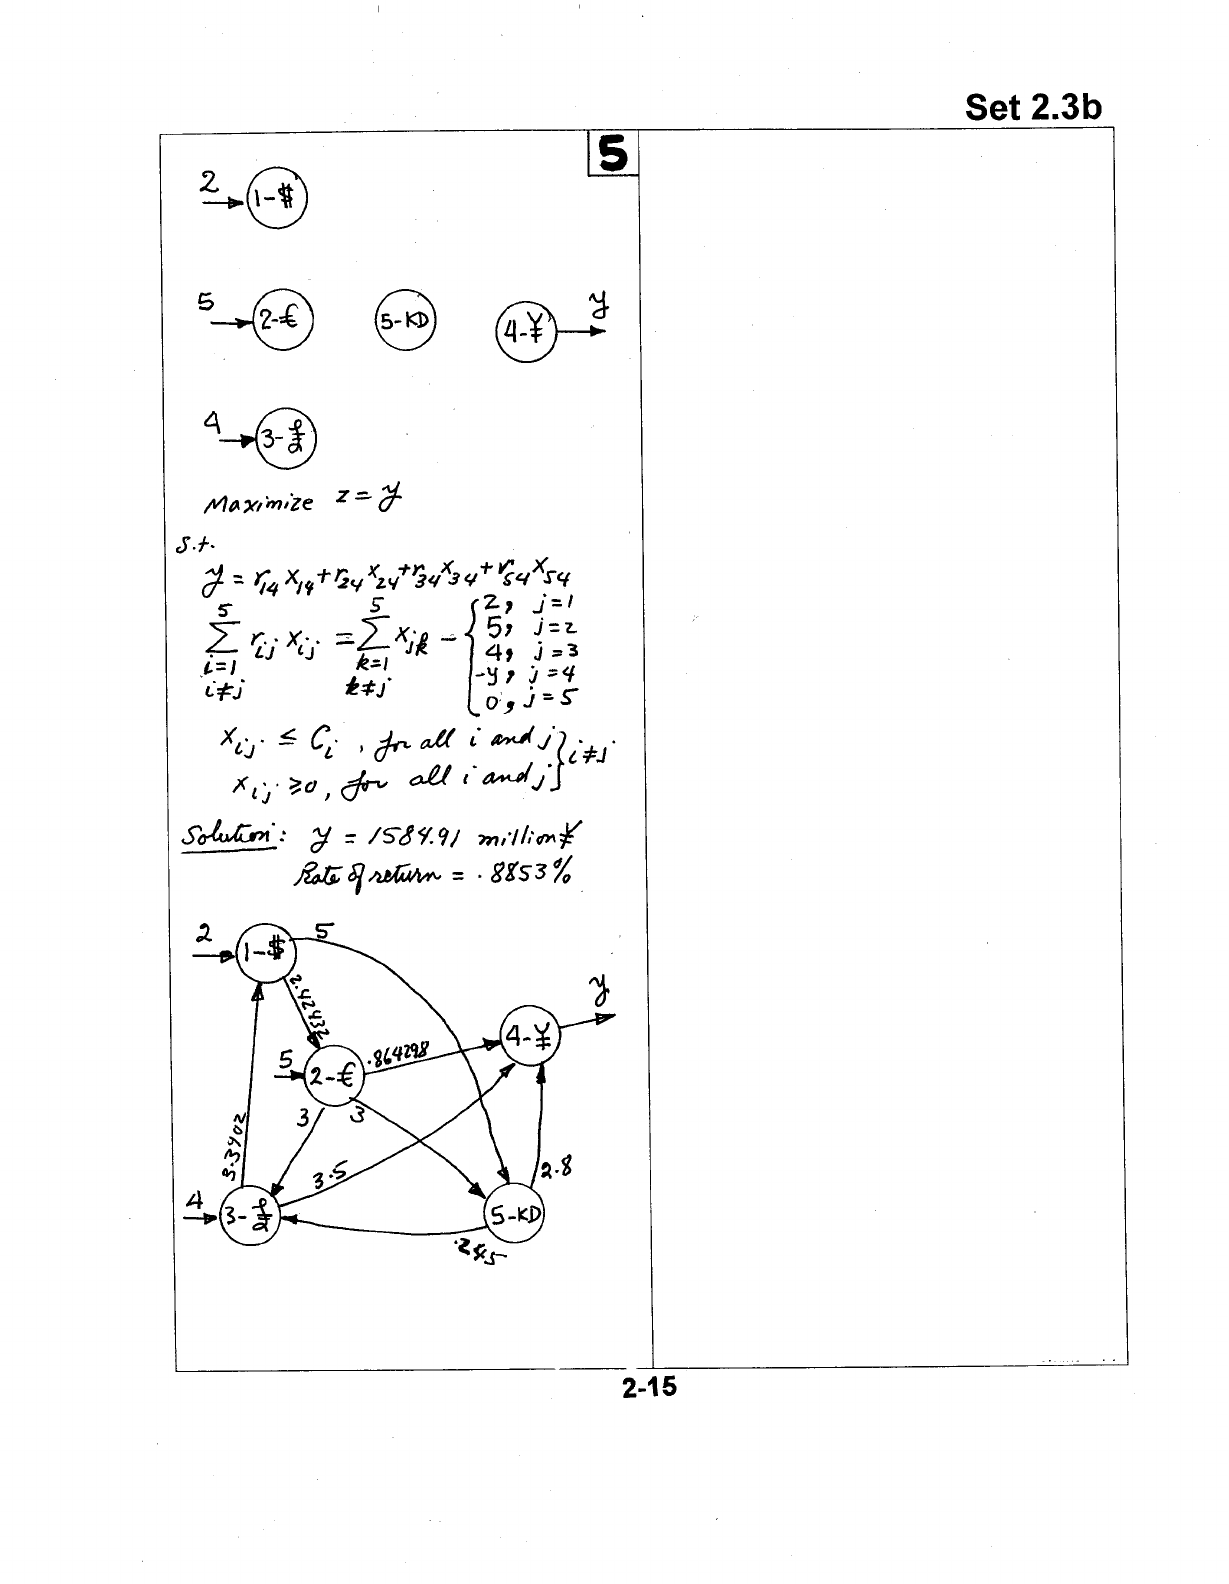 Set 2.3b
5
2
1-$
5
2-€
5-KD
4-¥
y
4
3-£
Maximize z = y
s.t.
y = r14 x14 + r24 x24 + r34 x34 + r54 x54
5 5 2, j=1
∑ rij xij = ∑ xjk - { 5, j=2
i=1 k=1 4, j=3
i≠j k≠j -y, j=4
0, j=5
xij ≤ Ci, for all i and j } i≠j
xij ≥ 0, for all i and j
Solution: y = 1584.91 million ¥
Rate of return = .8853%
2
1-$
5
2.42432
y
4-¥
.864298
5
2-€
3
3
3.3902
3.5
2.8
4
3-£
5-KD
.245
2-15